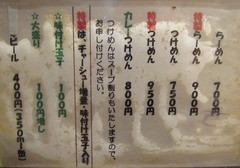 らーめん　700円
特製らーめん　900円
つけめん　750円
特製つけめん　950円
カレーつけめん　800円
つけめんはスープ割りもいたしますので、
お申し付けください。
特製は、チャーシュー増量・味付け玉子入り
☆味付け玉子　100円
☆大盛り　100円増し
ビール　400円(350ml缶)